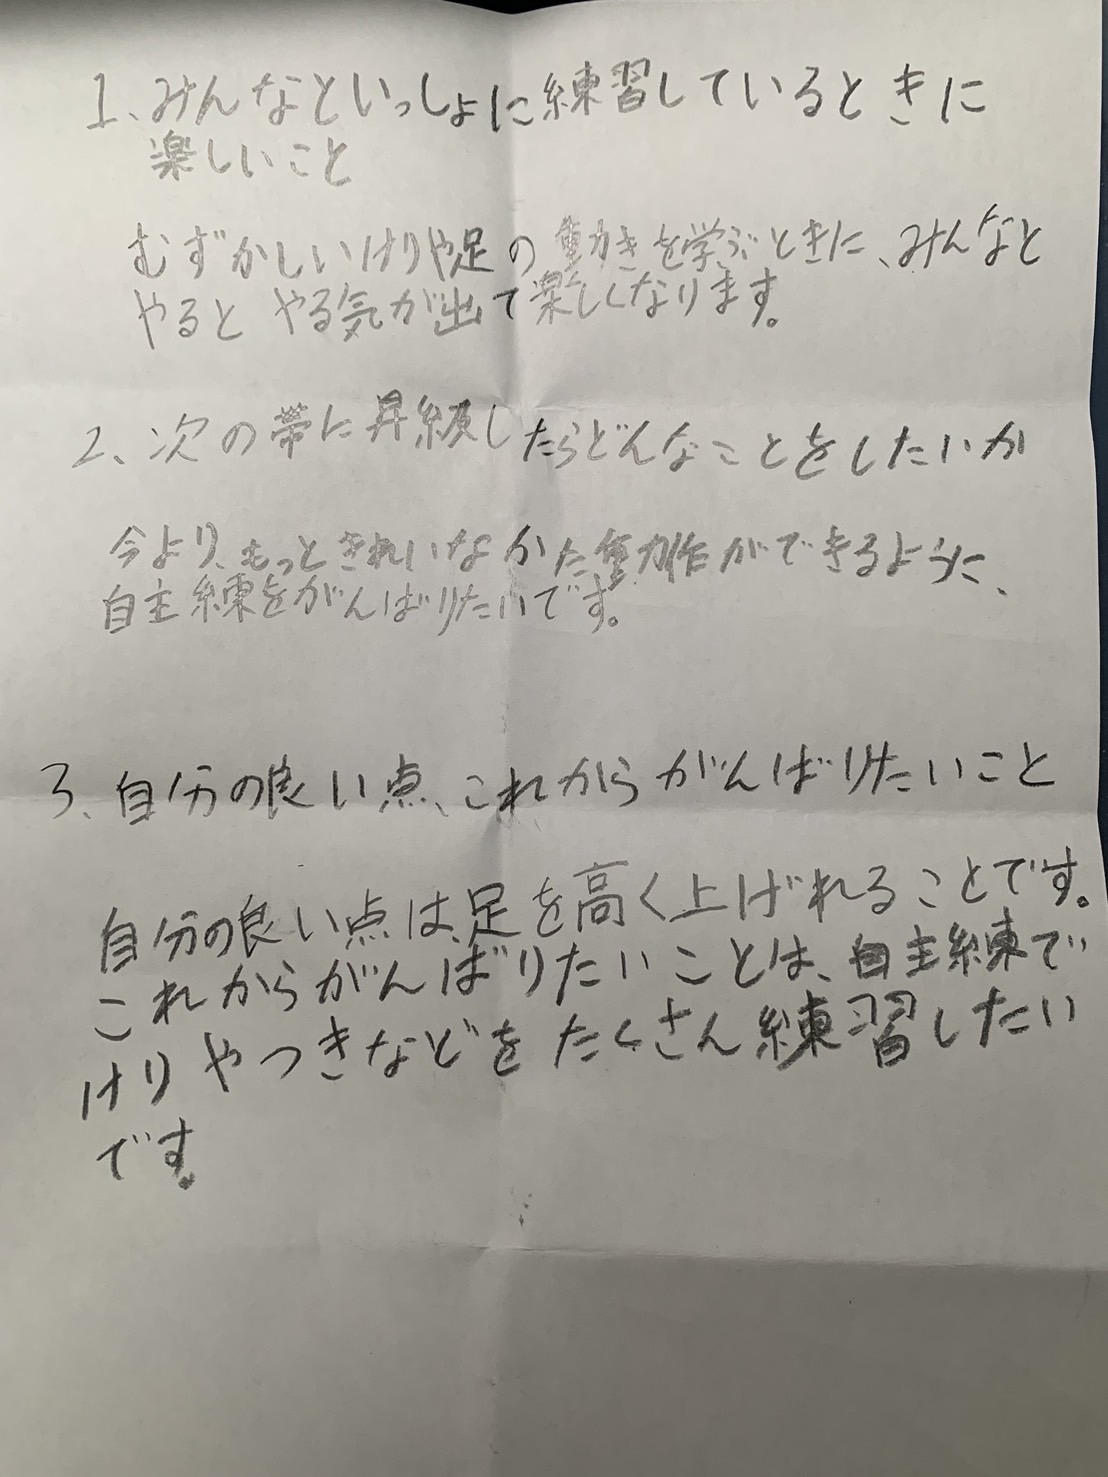 1、みんなといっしょに練習しているときに
楽しいこと
むずかしいけりや足の動きを学ぶときに、みんなと
やると やる気が出て楽しくなります。
2、次の帯に昇級したらどんなことをしたいか
今より、もっときれいなかた動作ができるように、
自主練をがんばりたいです。
3、自分の良い点、これからがんばりたいこと
自分の良い点は、足を高く上げれることです。
これからがんばりたいことは、自主練で
けりやつきなどをたくさん練習したい
です。